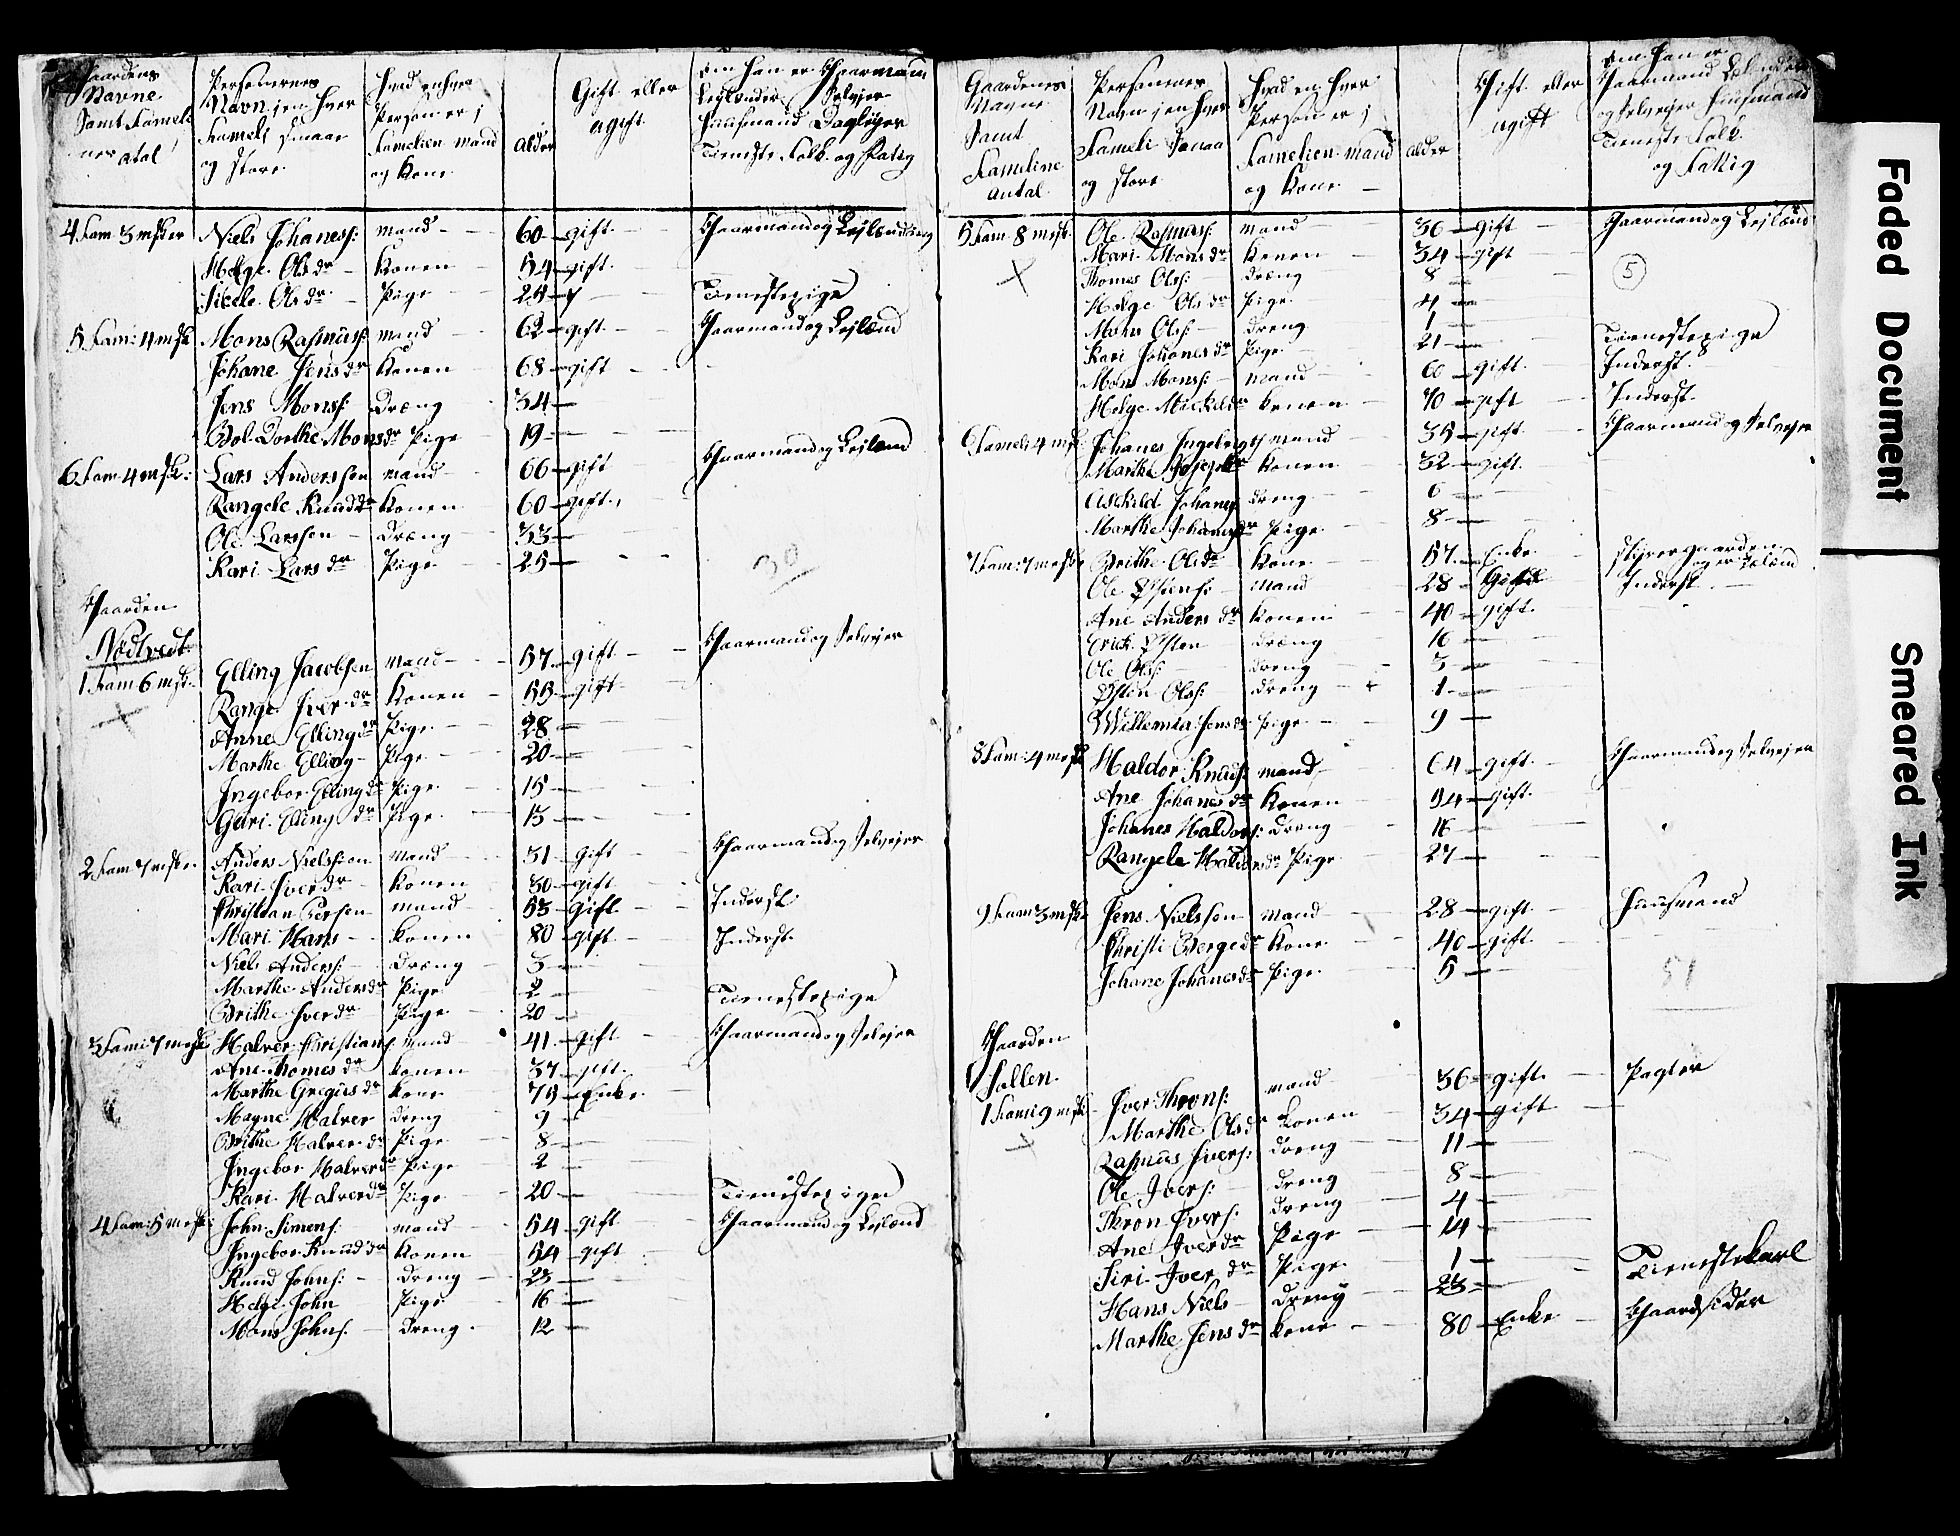 Gaardens
Navne
Samt Famels
nes atal
Personernes
Navn jen hver
Famels smaae
og store
Hvad enhver
Person er j
Famelien mand
og Kone
alder
Gift eller
ugift
om han er Gaarmand
Leylænder Selvejer
Huusmand Dagløyer
Tieneste Folk og Fatig
4 Fam 3 msker Niels Johaness: mand 60 gift Gaarmand og Leylænding
Helge Olsdr Konen 54 gift
Sicele Olsdr Pige 24 Tienestepige
5 Fam: 4 msk Mons Rasmuss: mand 62 gift Gaarmand og Leylænd
Johane Jensdr Konen 68 gift
Jens Monss: Dræng 34
Bol Dorthe Monsdr Pige 19
6 Fam 4 msk: Lars Anderssen mand 66 gift Gaarmand og Leylænd
Rangele Knudsdr Konen 60 gift
Ole Larssen Dræng 33
Kari Larsdr Pige 25
30
Gaarden
Nødtvedt
1 Fam 6 msk. Elling Jacobsen mand 57 gift Gaarmand og Selvejer
Range Iverdr Konen 55 gift
Anne Ellingdr Pige 28
Marthe Elling Pige 20
Ingebor Ellingdr Pige 15
Guri Elling dr Pige 13
2 Fam 7 msker Anders Nielssen mand 31 Gift Gaarmand og Selvejer
Kari Iverdr Konen 30 gift
Christian mand 53 Gift Inderst
Mari Hans Konen 80 gift Inderst
Niels Anderss: Dræng 3
Marthe Andersdr Pige 2
Brithe Iverdr Pige 20 Tienestepige
3 Fami 7 msk Halver Christians mand 41 gift Gaarmand og Selvejer
Ane Thomesdr Konen 37 gift
Marthe Gregusdr Kone 79 Enke
Magne Halver dreng 9
Brithe Halverdr Pige 8
Ingebor Halverdr Pige 2
Kari Halverdr Pige 20 Tienestepige
4 Fam: 5 msk John Simens: mand 54 gift Gaarmand og Leylænd
Ingebor Knuddr Konen 54 gift
Knud Johns: Dreng 23
Helge John Pige 16
Mons Johns: Dreng 12
Gaardenes
Navne
Samt
Fameliene
antal
Personnes
Navn jen hver
Fameli Smaa
og store
Hvad en hver
Person er j
Famelien mand
og Kone
alder
Gift eller
ugift
om han er
Gaarmand Leilænder
og Selvejer Huusmand
Tieneste Folk
og Fattig
5 Fam 8 msk. Ole Rasmuss: mand 36 gift Gaarmand og Leylænd
5
Mari Monsdr Konen 34 gift
Thomes Olss: dræng 8
Helge Olsdr Pige 4
Mons Olss: dreng 1
Kari Johanesdr Pige 21 Tienestepige
Mons Monss: mand 60 gift Inderst
Helge Mickeldr Konen 70 gift Inderst
6 Fameli 4 msk Johanes Ingebrigts mand 35 gift Gaarmand og Selvejer
Marthe Josepsdr Konen 32 gift
Askild Johanes dreng 6
Marthe Johanesdr Pige 8
7 Fam: 7 msk Brithe Olsdr Kone 57 Enke styrer gaarden
og er Lelænd
Ole Østens: mand 28 Gift Inderst
Ane Andersdr Konen 40 gift
Erick Østen dræng 16
Ole Olss: dreng 3
Østen Olss: dreng 1
Willemia Jensdr Pige 9
8 Fam: 4 msk Haldor Knuds: mand 64 gift Gaarmand og Selvejer
Ane Johanesdr Konen 54 gift
Johanes Haldors: dreng 16
Rangele Haldorsdr Pige 27
9 Fam 3 msk Jens Nielssen mand 28 gift Huusmand
Christi Bergedr Kone 40 gift
Johane Johanesdr Pige 5
51
Gaarden
Sallen
1 Fami 9 msk Iver Throns: mand 36 gift Pagter
Marthe Olsdr Konen 34 gift
Rasmus Ivers: dreng 11
Ole Ivers: dreng 8
Thron Ivers: dreng 4
Ane Iverdr Pige 14
Siri Iverdr Pige 1
Hans Niels dreng 23 Tienestekarl
Marthe Jensdr Kone 80 Enke Gaardsider
Faded Document
Smeared Ink